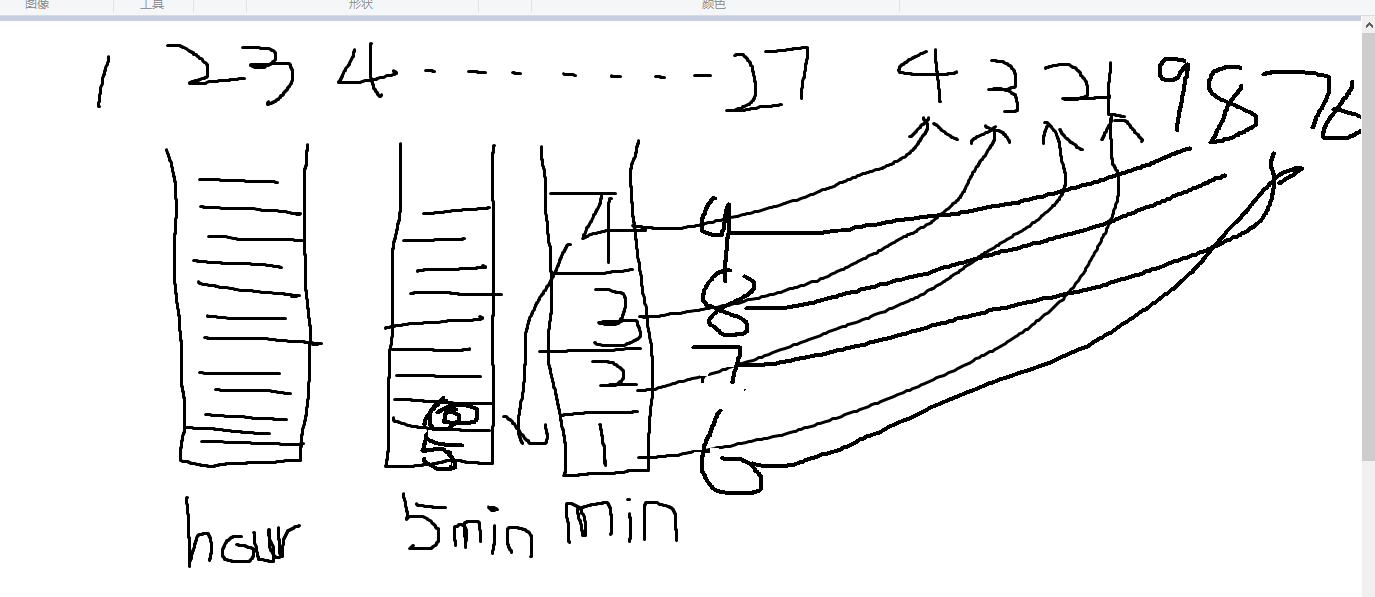 图像 工具 形状 颜色
1 2 3 4 - - - - - - - 27 4 3 2 1 9 8 7 6
4 9
3 8
2 7
5 1 6
hour 5min min